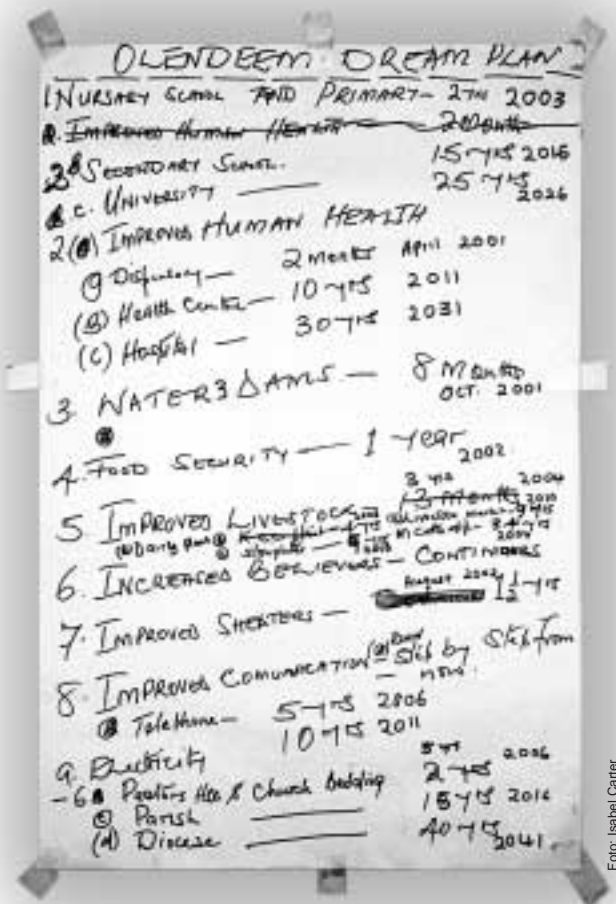 OLENDEEM DREAM PLAN
1 NURSARY SCHOOL AND PRIMARY - 2 YRS 2003
2. IMPROVED HUMAN HEALTH 2 Months
B SECONDARY SCHOOL. 15 YRS 2016
C. UNIVERSITY 25 YRS 2026
2 IMPROVED HUMAN HEALTH
Dispensary — 2 months April 2001
(B) Health Centre — 10 YRS 2011
(C) Hospital — 30 YRS 2031
3. WATER DAMS. — 8 Months
OCT. 2001
4. FOOD SECURITY — 1 Year
2002.
3 yrs 2004
5. IMPROVED LIVESTOCK
6. INCREASED BELIEVERS - CONTINUOUS
August 2002
7. IMPROVED SHELTERS — 1 1/2 YRS
8. IMPROVED COMUNICATION - Step by Step from
now.
Telephone — 5 YRS 2006
9. Electricity 10 YRS 2011
5 yrs 2006
- 6 Pastors Hse & Church building 2 YRS
Parish 15 YRS 2016
(d) Diocese 40 YRS
2041.
Foto: Isabel Carter